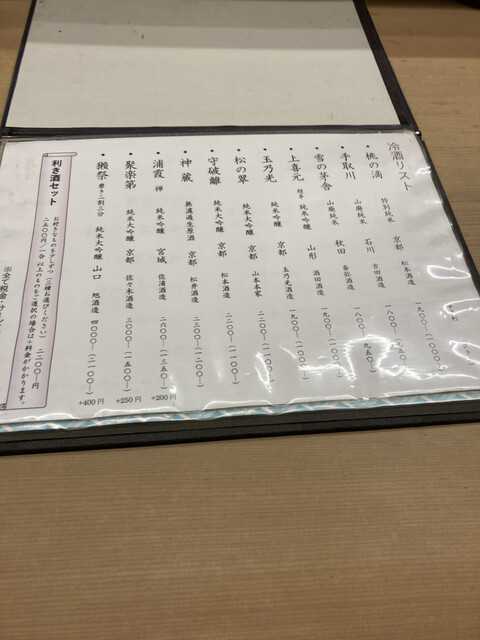 冷酒リスト
・桃の滴 特別純米 京都 松本酒造 一九〇〇
・手取川 山廃純米 石川 吉田酒造 一八〇〇 九五〇
・雪の茅舎 山廃純米 秋田 斎弥酒造 一八〇〇
・上喜元 純米吟醸 山形 酒田酒造 一九〇〇
・玉乃光 純米大吟醸 京都 玉乃光酒造
・松の翠 純米大吟醸 京都 山本本家
・守破離 純米大吟醸 京都 松本酒造 二二〇〇(一一〇〇)
・神蔵 無濾過生原酒 京都 松井酒造 二三〇〇(一一〇〇)
・浦霞 禅 純米吟醸 宮城 佐浦酒造 二六〇〇(一三五〇) +200円
・聚楽第 純米大吟醸 京都 佐々木酒造 三〇〇〇(一五〇〇) +250円
・獺祭 磨き二割三分 純米大吟醸 山口 旭酒造 四〇〇〇(二一〇〇) +400円
利き酒セット 二二〇〇円
お好きなものを少しずつ(三種お選びください)
二五〇〇円/一合 以上のものをご選択の場合は+料金がかかります。
※全て税金・サービ